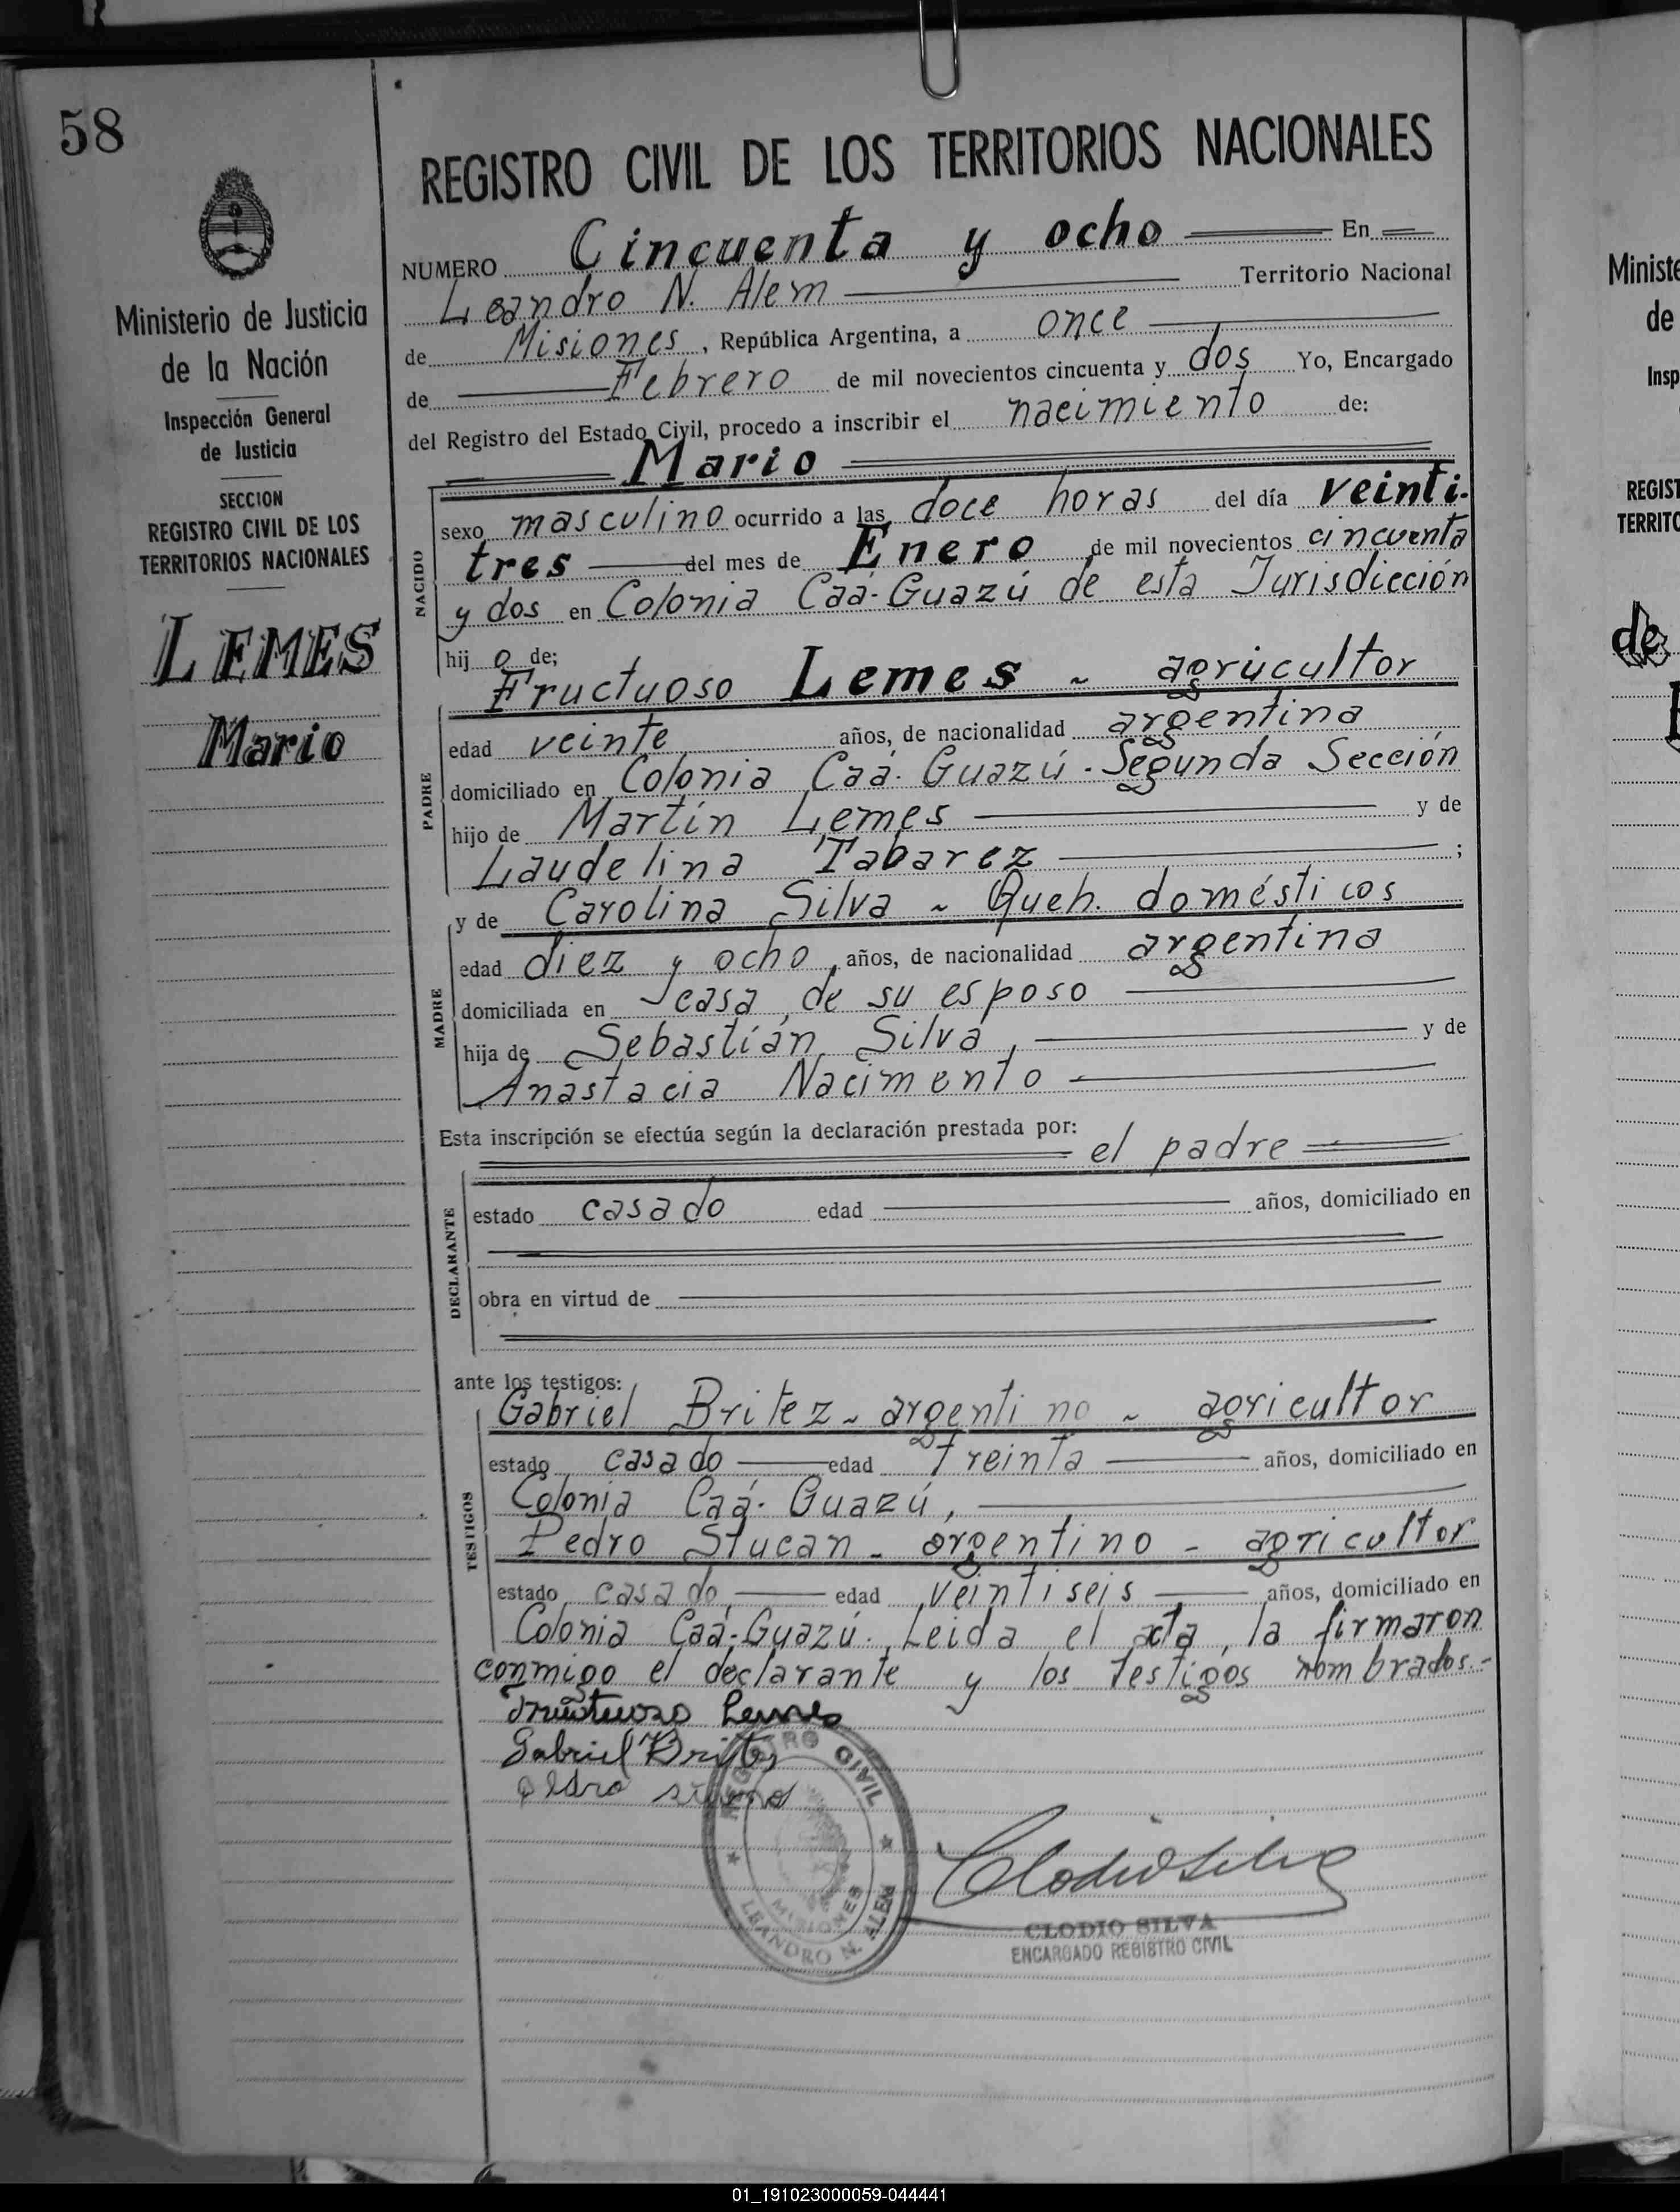 58
REGISTRO CIVIL DE LOS TERRITORIOS NACIONALES
NUMERO Cincuenta y ocho En
Leandro N. Alem Territorio Nacional
de Misiones, República Argentina, a once
de Febrero de mil novecientos cincuenta y dos Yo, Encargado
del Registro del Estado Civil, procedo a inscribir el nacimiento de:
Mario
sexo masculino ocurrido a las doce horas del día veinti-
tres del mes de Enero de mil novecientos cincuenta
y dos en Colonia Caá-Guazú de esta Jurisdicción
hijo de;
Fructuoso Lemes - agricultor
edad veinte años, de nacionalidad argentina
domiciliado en Colonia Caá-Guazú - Segunda Sección
hijo de Martín Lemes y de
Laudelina Tabarez ;
y de Carolina Silva - Queh. domésticos
edad diez y ocho años, de nacionalidad argentina
domiciliada en casa de su esposo
hija de Sebastián Silva, y de
Anastacia Nacimento
Esta inscripción se efectúa según la declaración prestada por:
el padre
estado casado edad años, domiciliado en
obra en virtud de
ante los testigos:
Gabriel Britez - argentino - agricultor
estado casado edad treinta años, domiciliado en
Colonia Caá-Guazú,
Pedro Stucan - argentino - agricultor
estado casado, edad veintiseis años, domiciliado en
Colonia Caá-Guazú. Leida el acta, la firmaron
conmigo el declarante y los testigos nombrados.-
Fructuoso Lemes
Gabriel Britez
pedro
REGISTRO CIVIL
MISIONES
LEANDRO N. ALEM
Clodio Silva
CLODIO SILVA
ENCARGADO REGISTRO CIVIL
NACIDO
PADRE
MADRE
DECLARANTE
TESTIGOS
Ministerio de Justicia
de la Nación
Inspección General
de Justicia
SECCION
REGISTRO CIVIL DE LOS
TERRITORIOS NACIONALES
LEMES
Mario
Ministe
de
Insp
REGIST
TERRITO
de
01_191023000059-044441